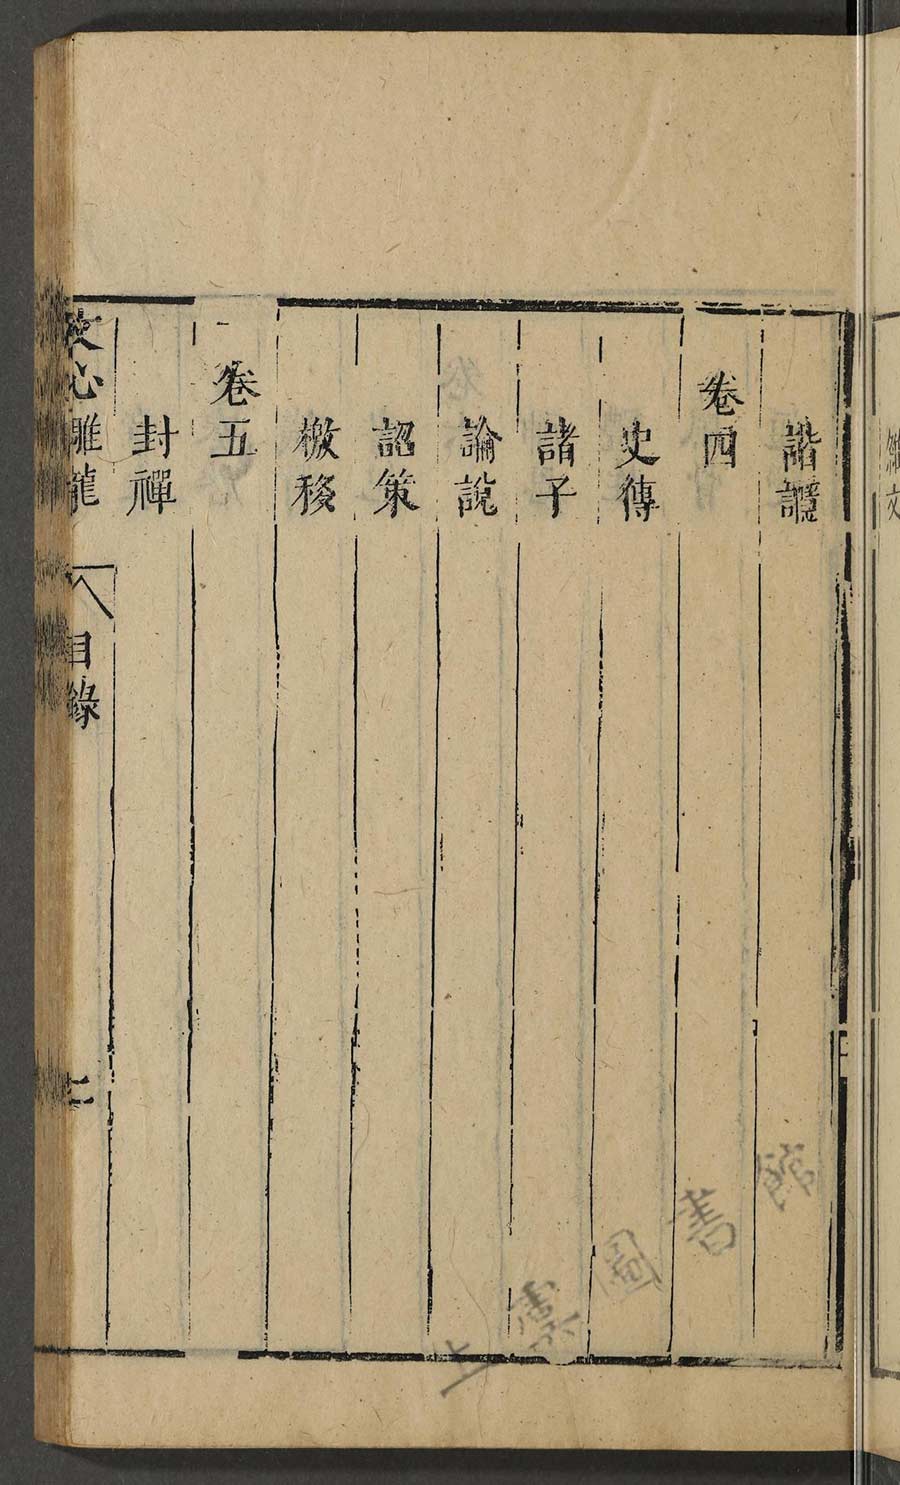 諧讔
卷四
史傳
諸子
論說
詔策
檄移
卷五
封禪
文心雕龍
目錄
上
雜文
圖書館